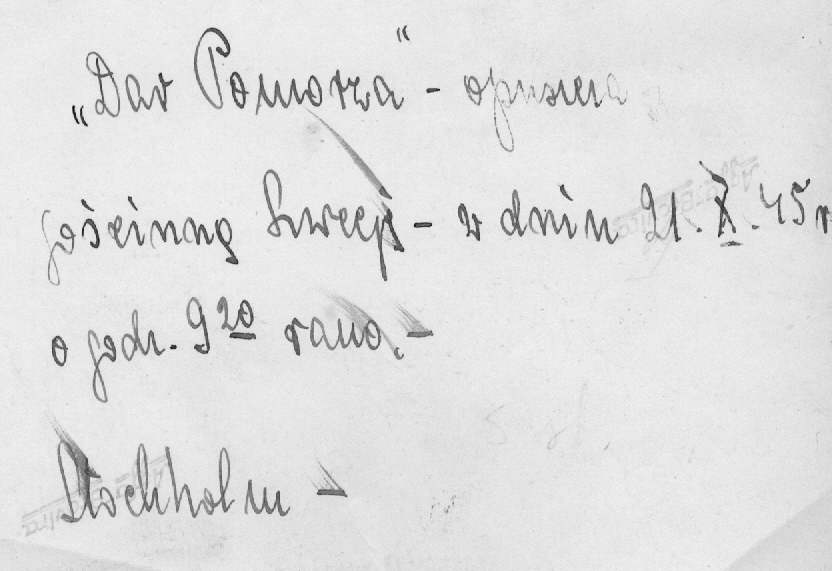 „Dar Pomorza“ - opuszcza
gościnną Szwecję - w dniu 21.X.45 r
o godz. 9 20 rano. -
Stockholm -